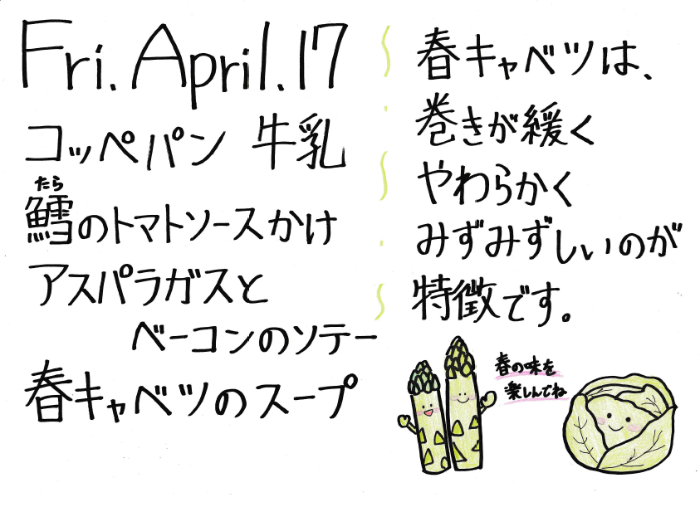 Fri. April. 17
コッペパン 牛乳
たら
鱈のトマトソースかけ
アスパラガスと
ベーコンのソテー
春キャベツのスープ
春キャベツは、
巻きが緩く
やわらかく
みずみずしいのが
特徴です。
春の味を
楽しんでね